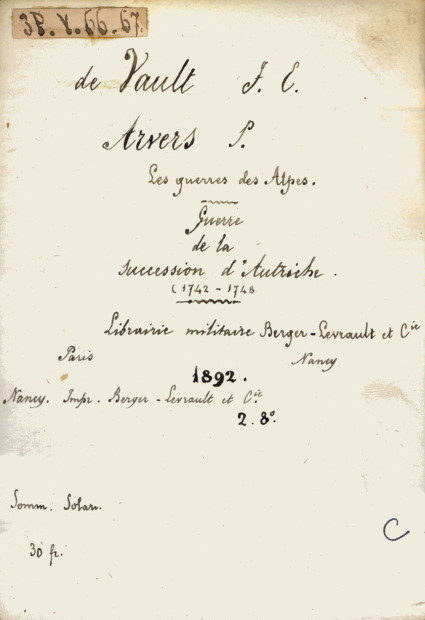 3B. V. 66-67.
de Vault F. E.
Arvers P.
Les guerres des Alpes.
Guerre
de la
succession d'Autriche.
(1742-1748
Librairie militaire Berger-Levrault et Cie
Paris Nancy
1892.
Nancy. Impr. Berger-Levrault et Cie.
2. 8º.
Somm. Solar.
30 fr.
C